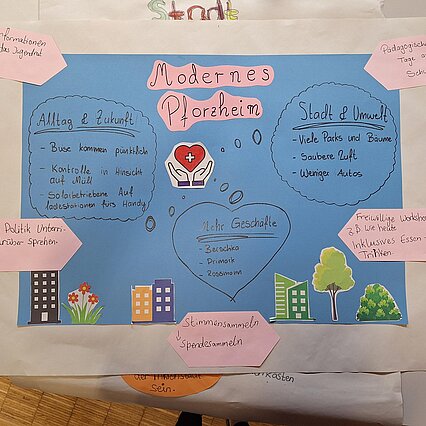 Stadt
Informationen
das Jugendrat
Pädagogische
Tage
Schu
Modernes
Pforzheim
Alltag & Zukunft
- Buse kommen pünktlich
- Kontrolle in Hinsicht
auf Müll
- Solarbetriebene Auf
ladestationen fürs Handy
Stadt & Umwelt
- Viele Parks und Bäume
- Saubere Luft
- Weniger Autos
Mehr Geschäfte
- Bershka
- Primark
- Rossmann
Politik Unterri
rüber Sprechen.
Freiwillige Workshop
z.B. wie heute
Inklusives Essen
Trinken.
Stimmensammeln
↓ Spendesammeln
der Innenstadt
Sein.
kasten